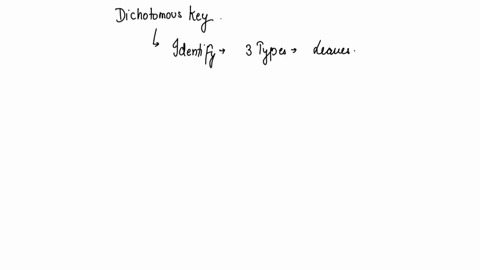 Dichotomous key.
↳ Identify → 3 Types → Leaves.